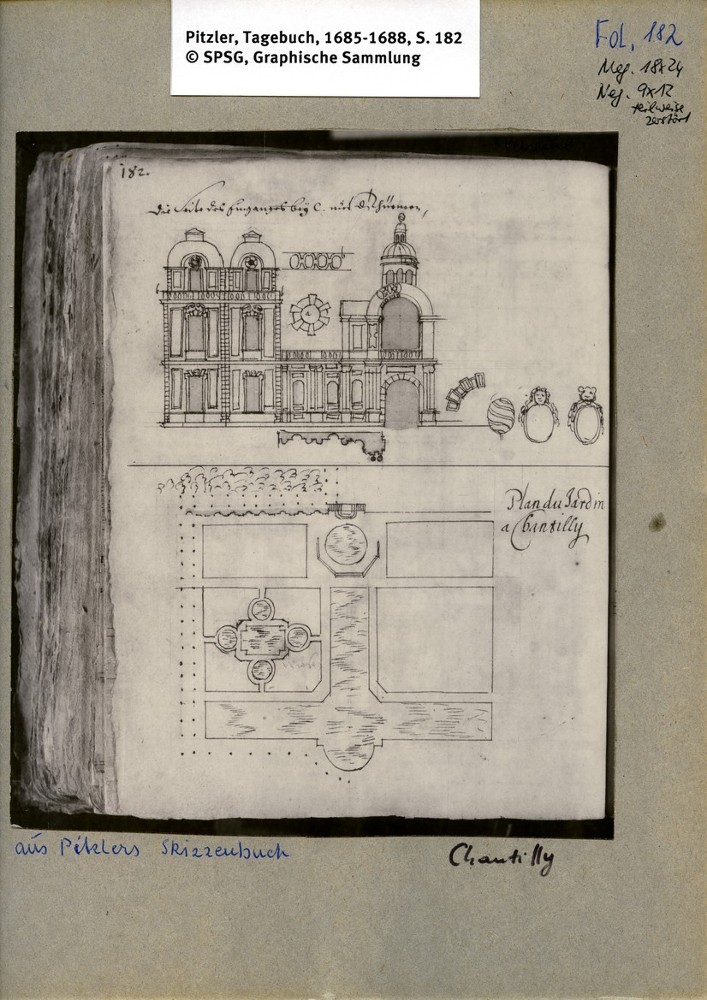 Pitzler, Tagebuch, 1685-1688, S. 182
© SPSG, Graphische Sammlung
Fol. 182
Neg. 18x24
Neg. 9x12
teilweise
zerstört
182.
Die Seite des Einganges bey C. mit
Plan du Jardin
a Chantilly
aus Pitzlers Skizzenbuch
Chantilly